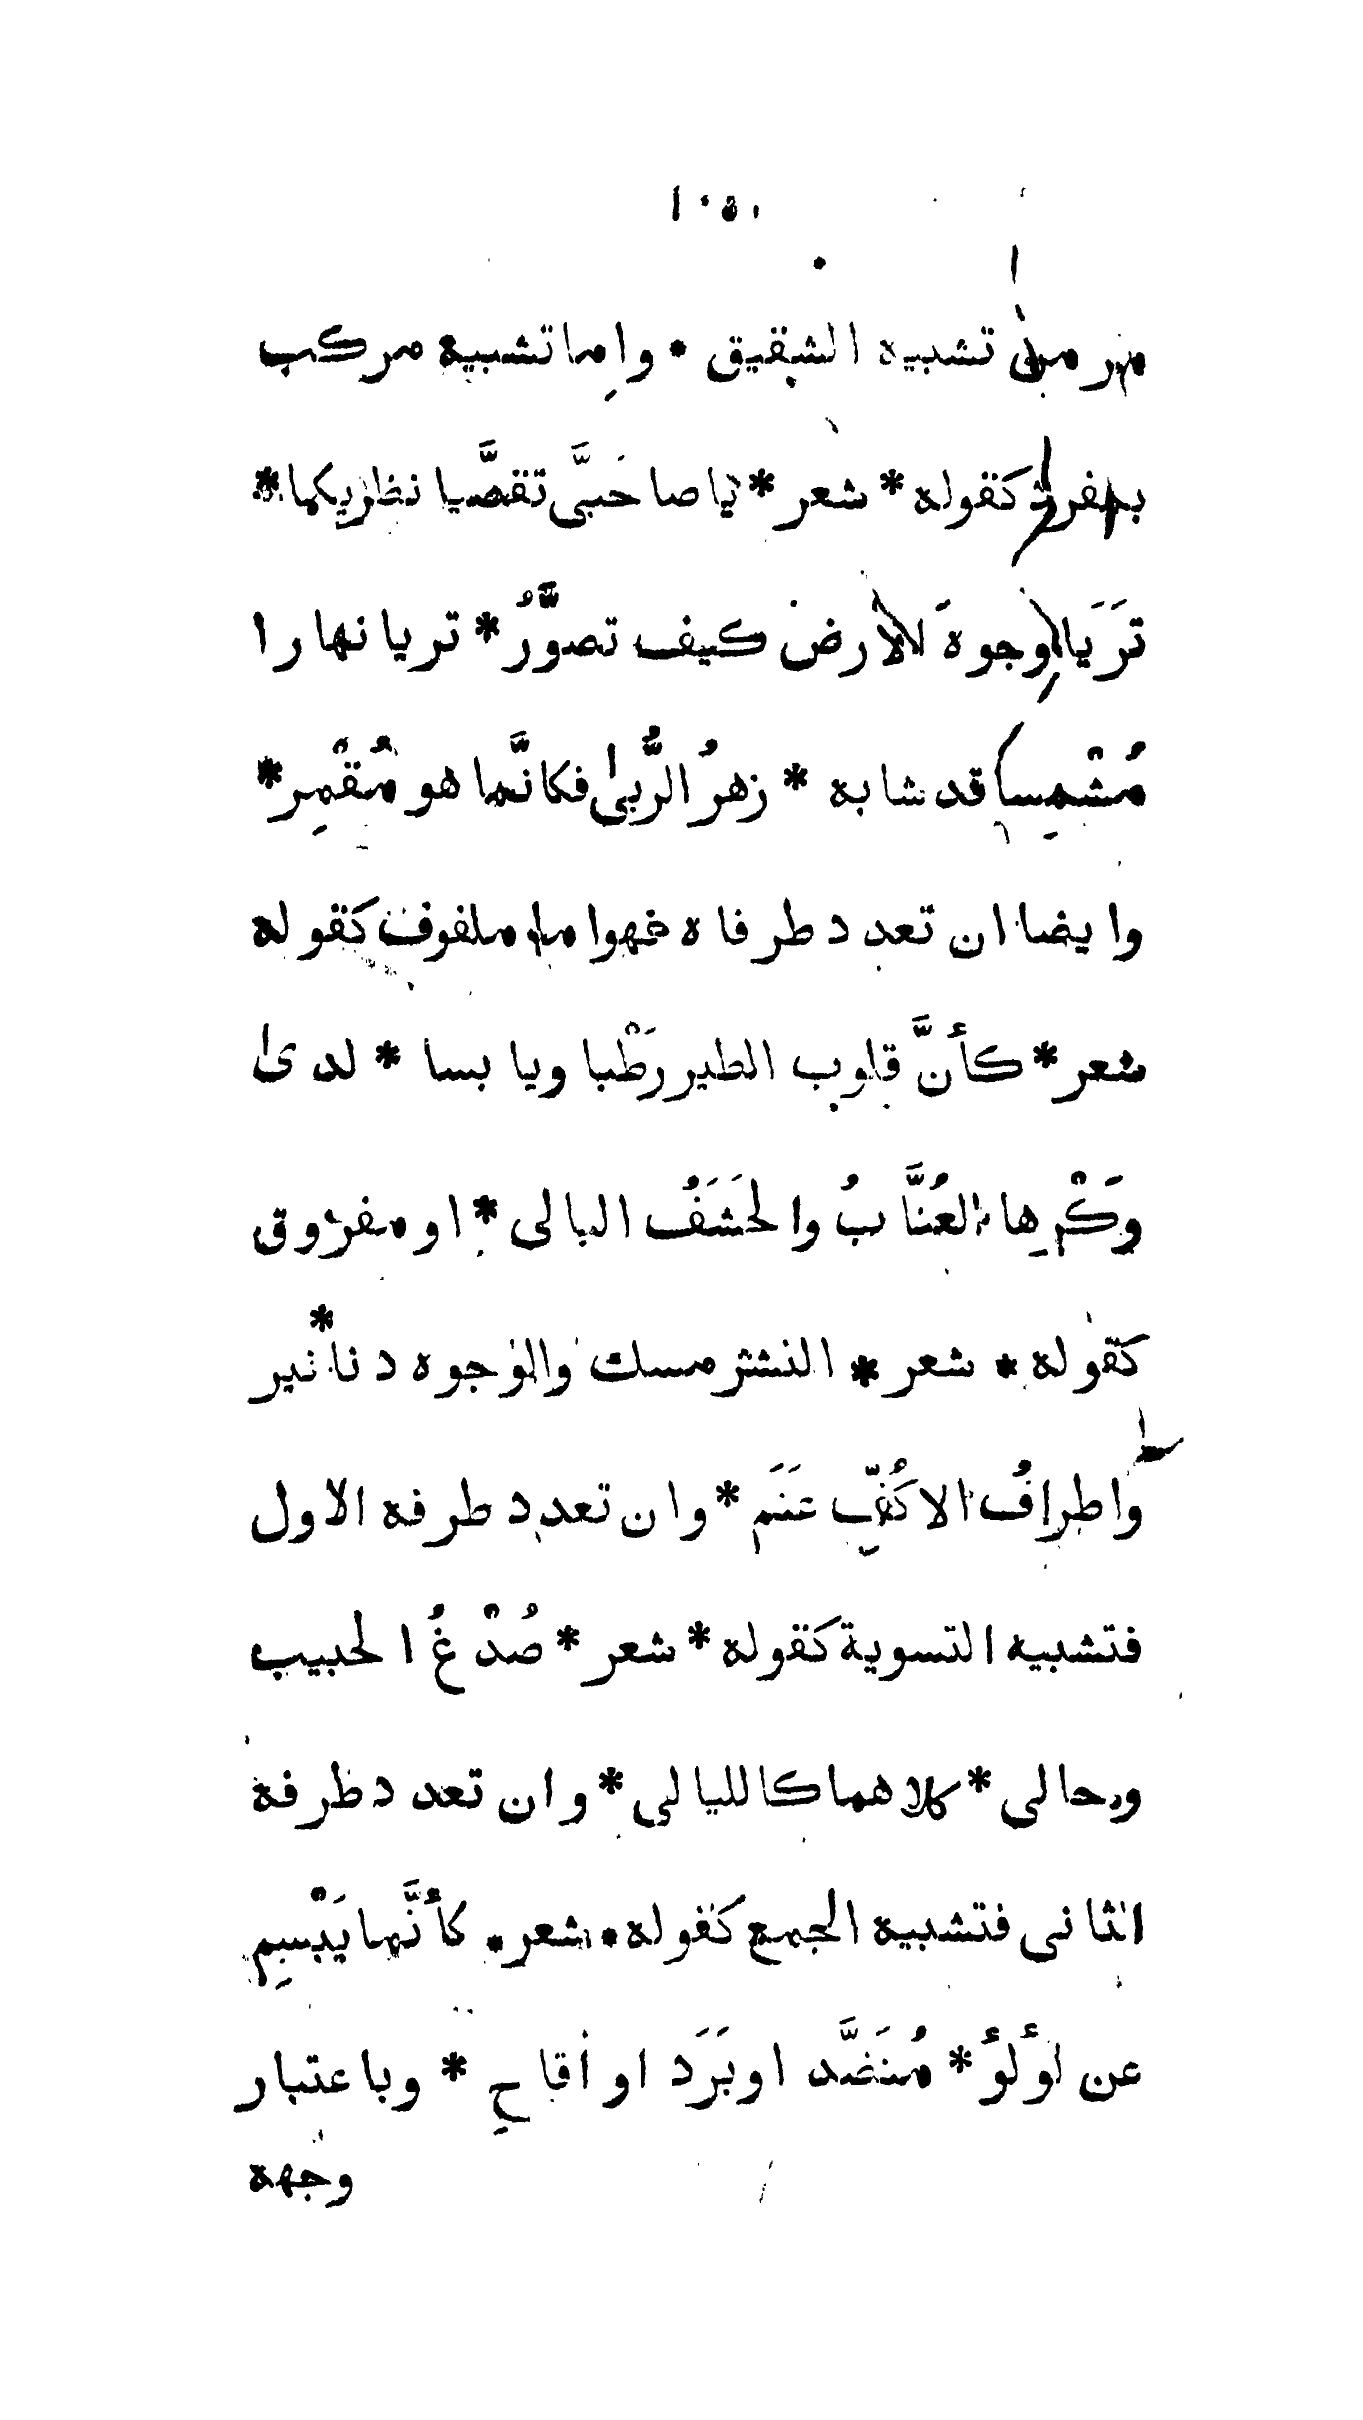 ١٠٥
مر من تشبيه الشقيق * واما تشبيه مركب
بمفرد كقوله * شعر * يا صاحبىَّ تقصَّيا نظريكما *
تَرَيا وجوهَ الأرض كيف تصوَّرُ * تريا نهارا
مُشْمِسا قد شابه * زهرُ الرُّبىٰ فكانَّما هو مُقْمِر *
وايضا ان تعدد طرفاه فهو اما ملفوف كقوله
شعر * كأنَّ قلوب الطير رَطْبا ويابسا * لدىٰ
وَكْرِها العُنَّابُ والحَشَفُ البالى * او مفروق
كقوله * شعر * النشر مسك والوجوه دنانير *
واطرافُ الاكُفِّ عَنَم * وان تعدد طرفه الاول
فتشبيه التسوية كقوله * شعر * صُدْغُ الحبيب
وحالى * كلاهما كالليالى * وان تعدد طرفه
الثانى فتشبيه الجمع كقوله * شعر * كأنَّما يَبْسِم
عن لؤلؤ * مُنَضَّد او بَرَد او أقاحٍ * وباعتبار
وجهه